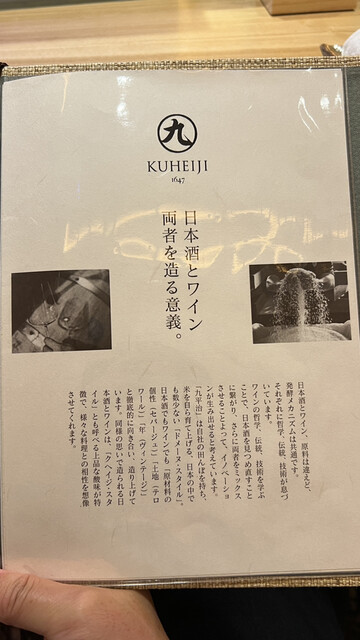 九
KUHEIJI
1647
日本酒とワイン
両者を造る意義。
日本酒とワイン、原料は違えど、
発酵メカニズムは共通です。
それぞれに哲学、伝統、技術が息づ
いています。
ワインの哲学、伝統、技術を学ぶ
ことで、日本酒を見つめ直すこと
に繋がり、さらに両者をミックス
させることによって、イノベーショ
ンが生み出せると考えています。
「九平治」は自社の田んぼを持ち、
米を自ら育て上げる、日本の中で
も数少ない「ドメーヌ・スタイル」。
日本酒でもワインでも「原材料の
個性（セパージュ）」「土地（テロ
ワール）」「年（ヴィンテージ）」
と徹底的に向き合い、造り上げて
います。同様の思いで造られる日
本酒とワインは、「クヘイジ・スタ
イル」とも呼べる上品な酸味が特
徴で、様々な料理との相性を想像
させてくれます。